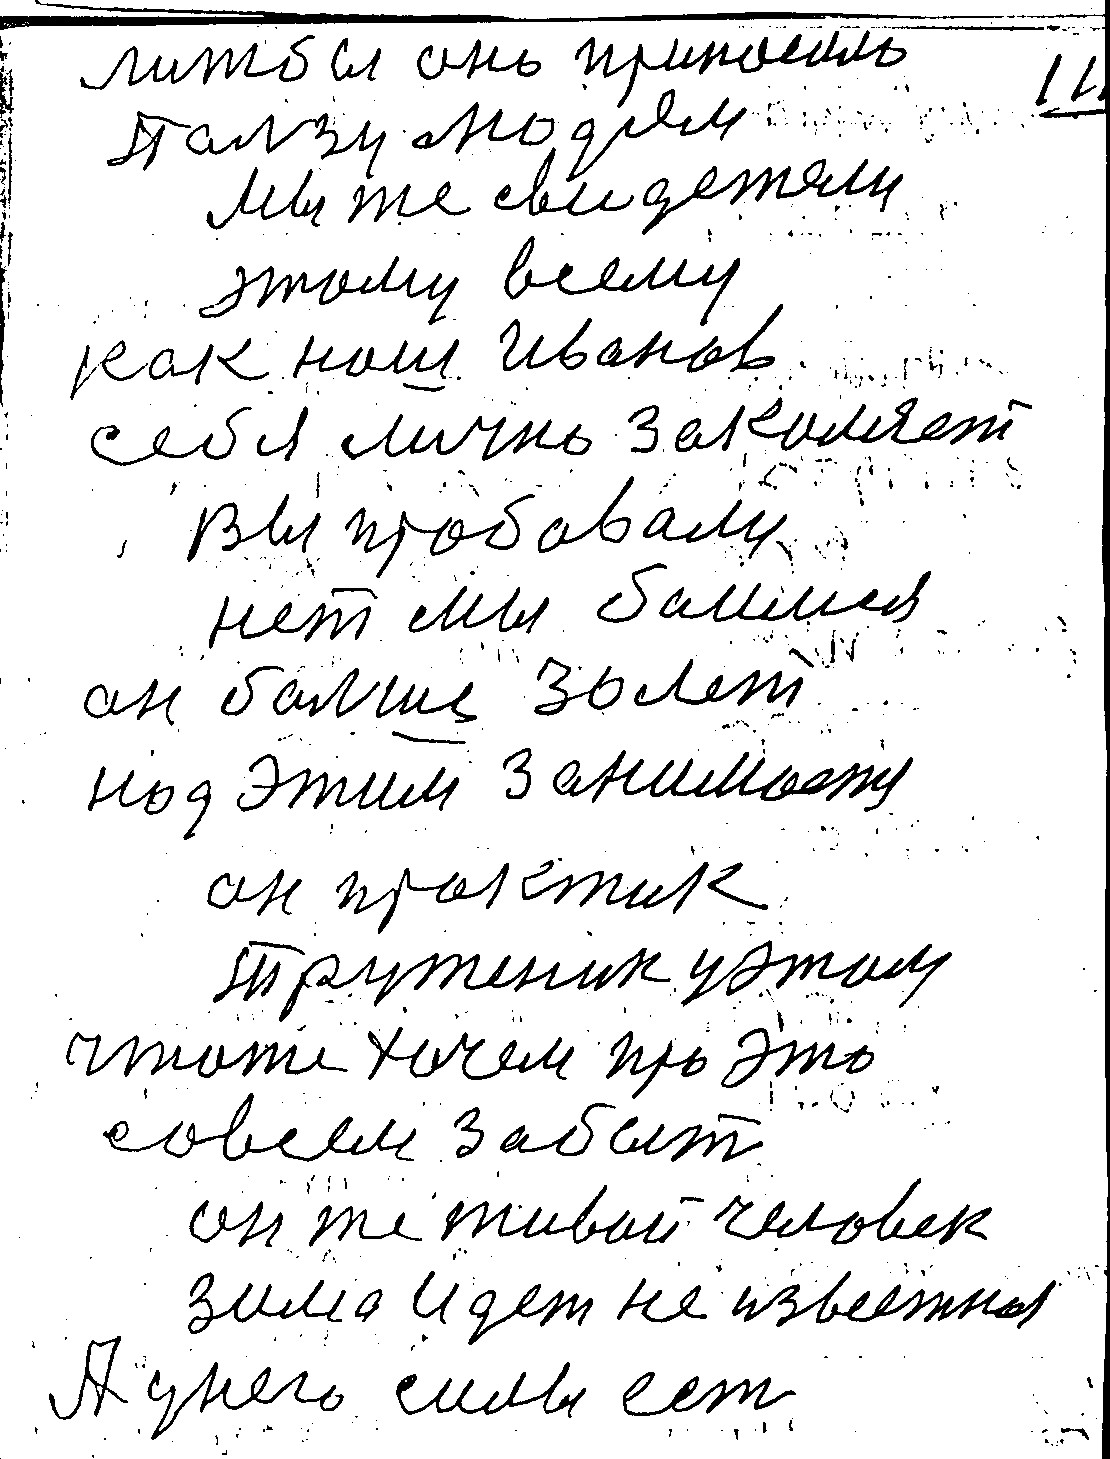 литбы онь приносиль
111
Палзу людям
Мы же свидетели
этому всему
как наш Иванов
себя личнь закаляет
Вы пробовали
нет мы баимся
он балше 30 лет
над этим занимается
он практик
Труженик у этом
чтоже хочем про это
совсем забыт
он же живой человек
зима идет не известная
А у него силы ест